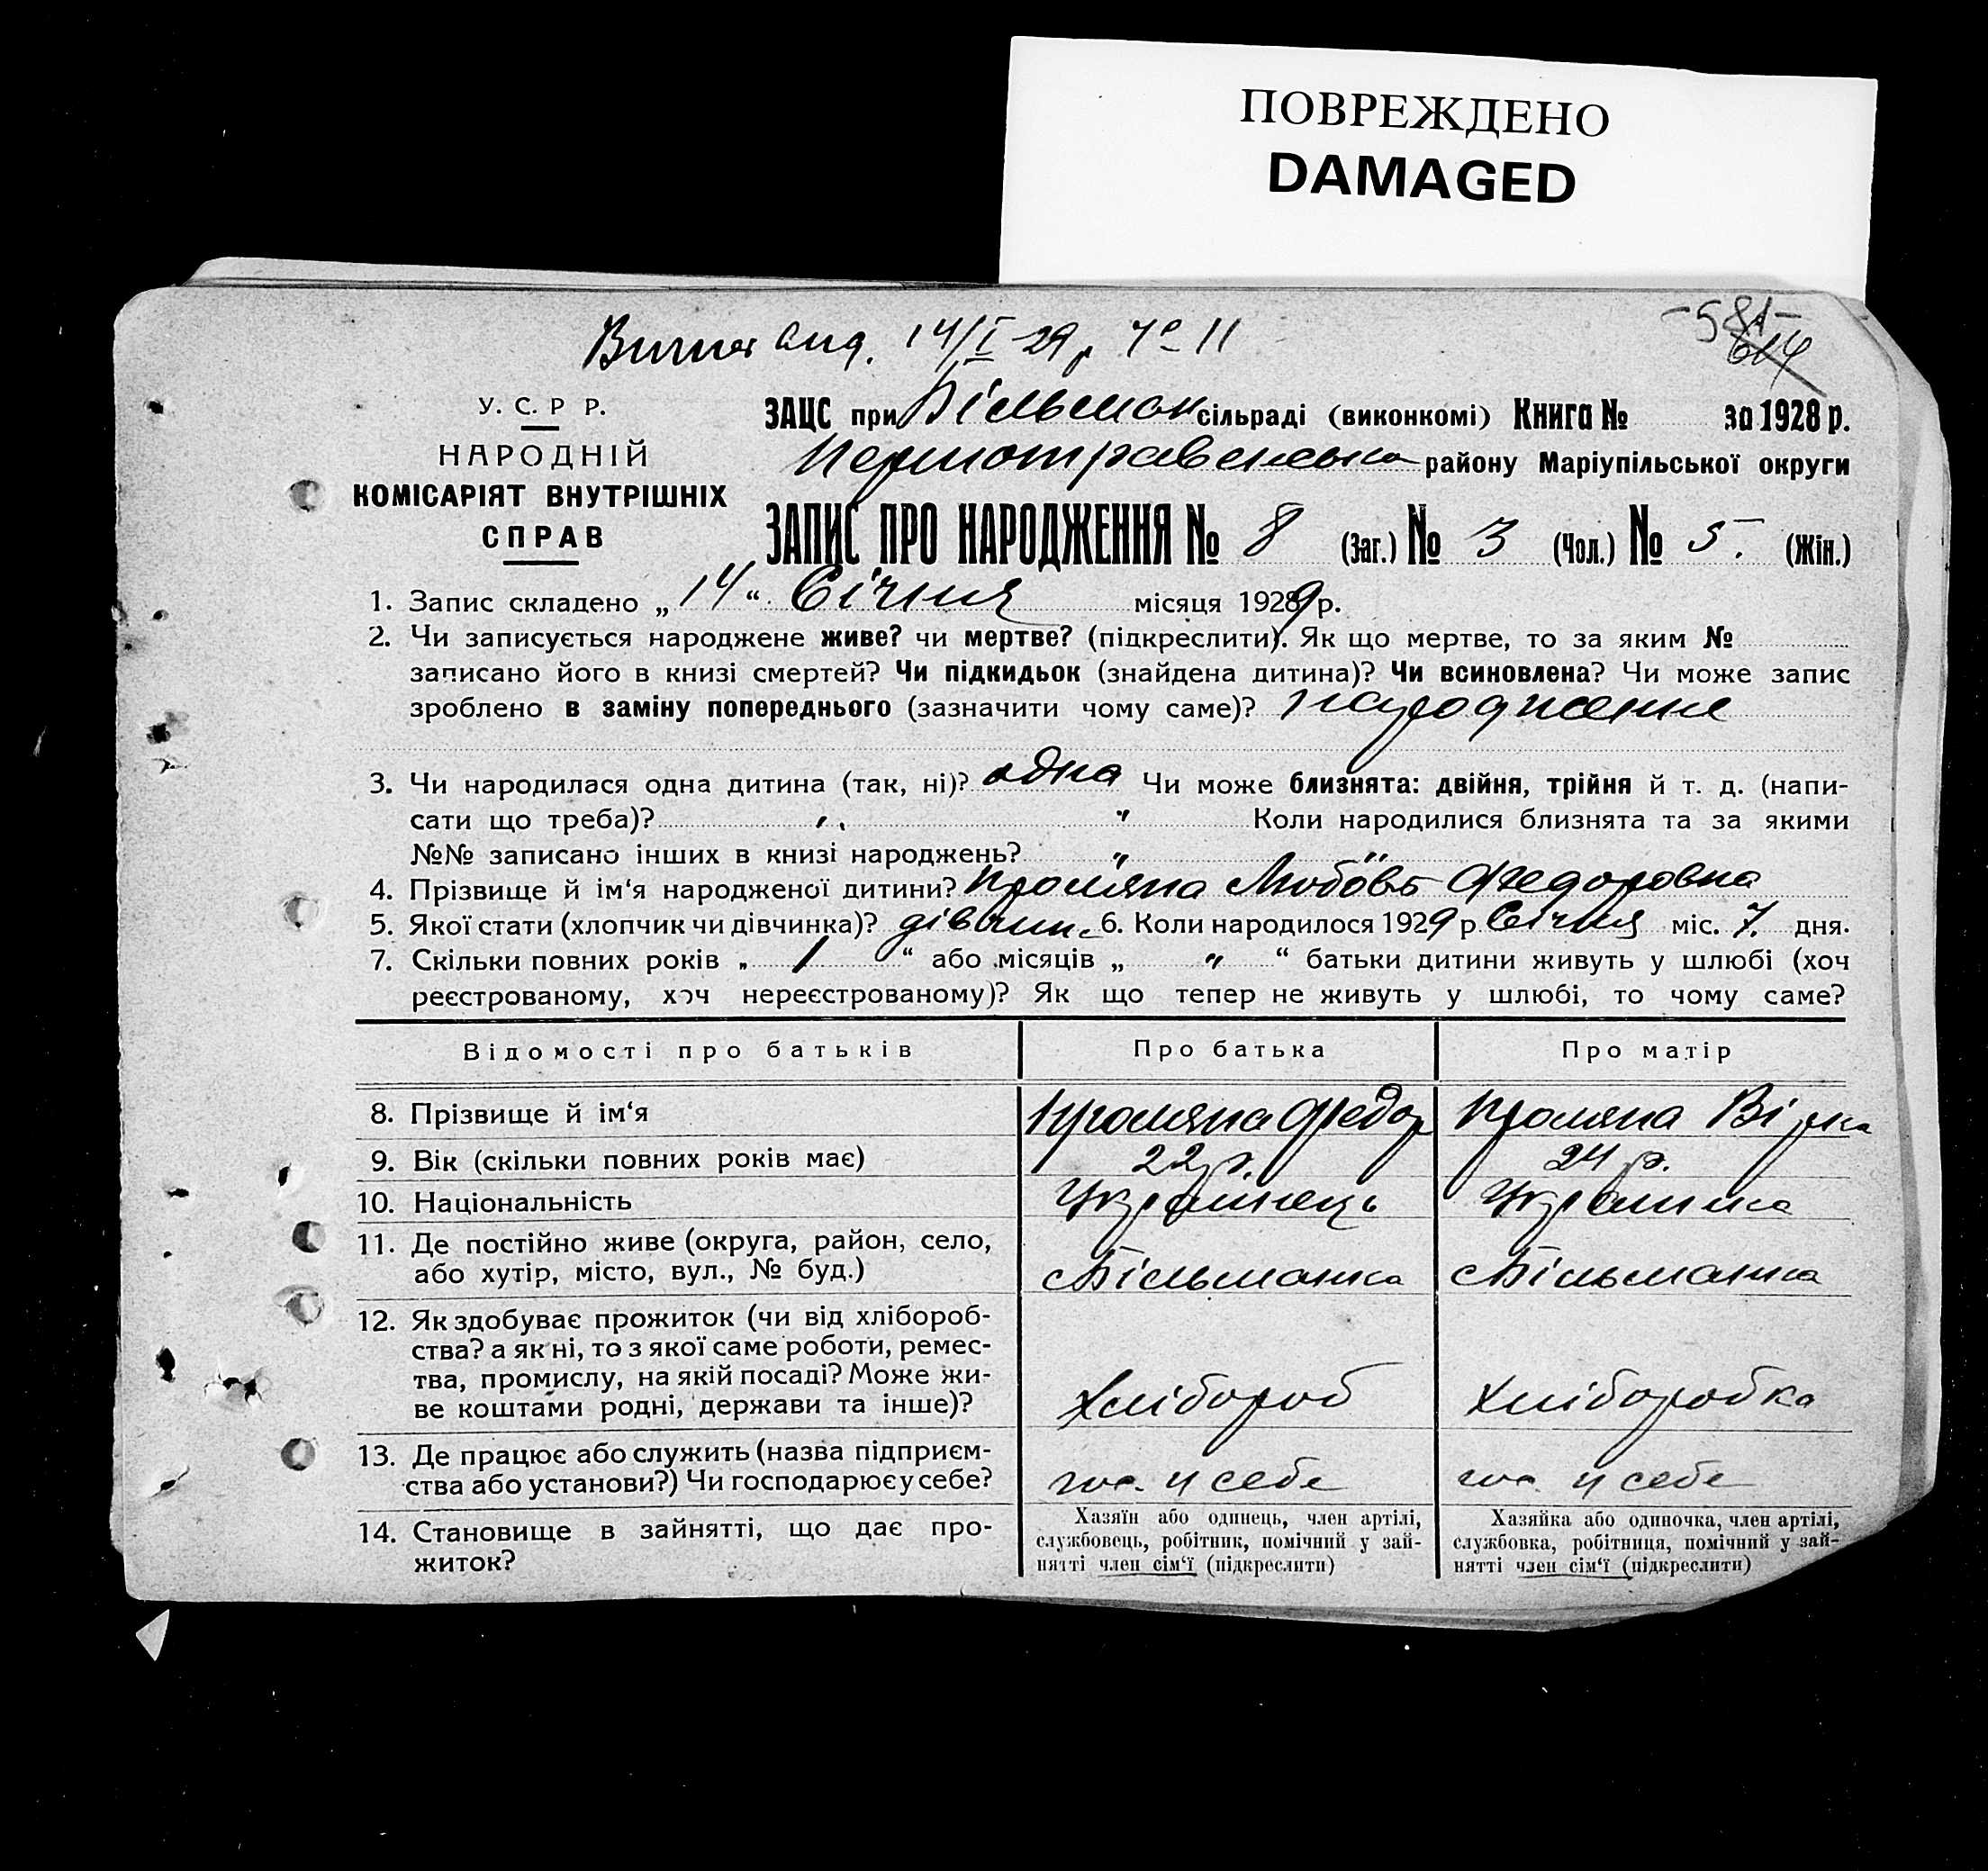 ПОВРЕЖДЕНО
DAMAGED
14/I 29 р. № 11
- 581 -
614
У. С. Р Р.
НАРОДНІЙ
КОМІСАРІЯТ ВНУТРІШНІХ
СПРАВ
ЗАЦС при Більмак сільраді (виконкомі) Книга № за 1928 р.
району Маріупільської округи
ЗАПИС ПРО НАРОДЖЕННЯ № 8 (Заг.) № 3 (Чол.) № 5. (Жін.)
1. Запис складено „ 14 “ Січня місяця 1929 р.
2. Чи записується народжене живе? чи мертве? (підкреслити). Як що мертве, то за яким №
записано його в книзі смертей? Чи підкидьок (знайдена дитина)? Чи всиновлена? Чи може запис
зроблено в заміну попереднього (зазначити чому саме)? народження
3. Чи народилася одна дитина (так, ні)? одна Чи може близнята: двійня, трійня й т. д. (напи-
сати що треба)? „ " Коли народилися близнята та за якими
№№ записано інших в книзі народжень? "
4. Прізвище й ім‘я народженої дитини? Любовь Федоровна
5. Якої стати (хлопчик чи дівчинка)? дівчин. 6. Коли народилось 1929 р. Січня міс. 7. дня.
7. Скільки повних років „ 1 “ або місяців „ " “ батьки дитини живуть у шлюбі (хоч
реєстрованому, хоч нереєстрованому)? Як що тепер не живуть у шлюбі, то чому саме?
Відомості про батьків Про батька Про матір
8. Прізвище й ім‘я Федор Вірка
9. Вік (скільки повних років має) 22 р. 24 р.
10. Національність Українець Українка
11. Де постійно живе (округа, район, село,
або хутір, місто, вул., № буд.) Більманка Більманка
12. Як здобуває прожиток (чи від хлібороб-
ства? а як ні, то з якої саме роботи, ремес-
тва, промислу, на якій посаді? Може жи-
ве коштами родні, держави та інше)? Хлібороб Хліборобка
13. Де працює або служить (назва підприєм-
ства або установи?) Чи господарює у себе? гос. у себе гос. у себе
14. Становище в зайнятті, що дає про-
житок?
Хазяїн або одинець, член артілі,
службовець, робітник, помічний у зай-
нятті член сім‘ї (підкреслити)
Хазяйка або одиночка, член артілі,
службовка, робітниця, помічний у зай-
нятті член сім‘ї (підкреслити)